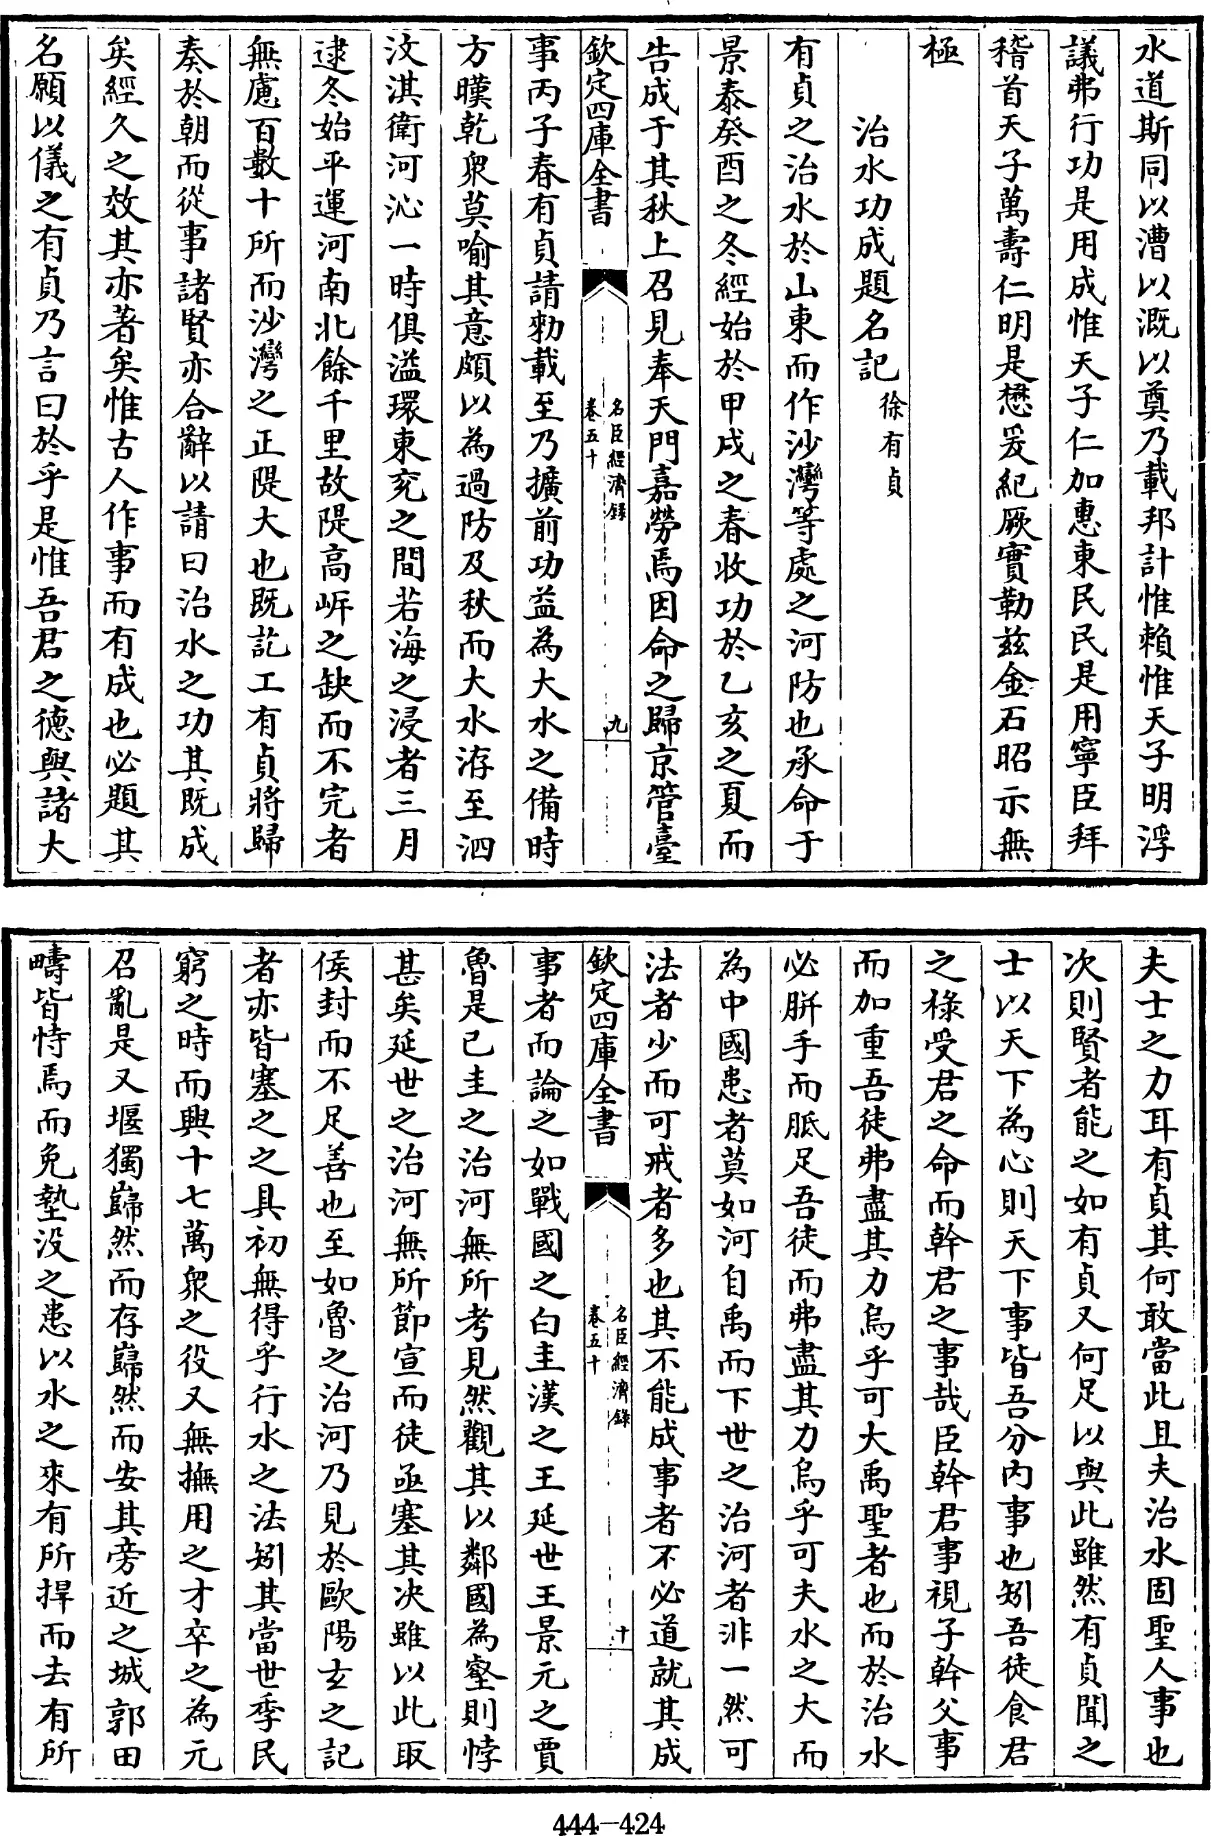 水道斯同以漕以溉以奠乃載邦計惟賴惟天子明浮
議弗行功是用成惟天子仁加惠東民民是用寧臣拜
稽首天子萬壽仁明是懋爰紀厥實勒兹金石昭示無
極
治水功成題名記 徐有貞
有貞之治水於山東而作沙灣等處之河防也承命于
景泰癸酉之冬經始於甲戌之春收功於乙亥之夏而
告成于其秋上召見奉天門嘉勞焉因命之歸京管臺
欽定四庫全書 名臣經濟錄 卷五十 九
事丙子春有貞請勑載至乃擴前功益為大水之備時
方暵乾衆莫喻其意頗以為過防及秋而大水洊至泗
汶淇衛河沁一時俱溢環東兖之間若海之浸者三月
逮冬始平運河南北餘千里故隄高岍之缺而不完者
無慮百數十所而沙灣之正隄大也既訖工有貞將歸
奏於朝而從事諸賢亦合辭以請曰治水之功其既成
矣經久之效其亦著矣惟古人作事而有成也必題其
名願以儀之有貞乃言曰於乎是惟吾君之德與諸大
夫士之力耳有貞其何敢當此且夫治水固聖人事也
次則賢者能之如有貞又何足以與此雖然有貞聞之
士以天下為心則天下事皆吾分内事也矧吾徒食君
之祿受君之命而幹君之事哉臣幹君事視子幹父事
而加重吾徒弗盡其力烏乎可大禹聖者也而於治水
必胼手而胝足吾徒而弗盡其力烏乎可夫水之大而
為中國患者莫如河自禹而下世之治河者非一然可
法者少而可戒者多也其不能成事者不必道就其成
欽定四庫全書 名臣經濟錄 卷五十 十
事者而論之如戰國之白圭漢之王延世王景元之賈
魯是已圭之治河無所考見然觀其以鄰國為壑則悖
甚矣延世之治河無所節宣而徒亟塞其决雖以此取
侯封而不足善也至如魯之治河乃見於歐陽玄之記
者亦皆塞之之具初無得乎行水之法矧其當世季民
窮之時而興十七萬衆之役又無撫用之才卒之為元
召亂是又堰獨巋然而存巋然而安其旁近之城郭田
疇皆恃焉而免墊没之患以水之來有所捍而去有所
444-424